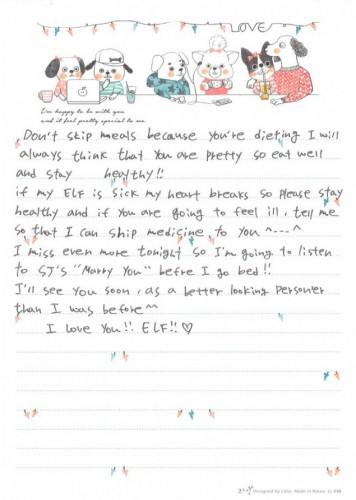 LOVE
I'm happy to be with you
and it feel pretty special to me
Don't skip meals because you're dieting I will
always think that You are pretty so eat well
and stay healthy!!
if my ELF is sick my heart breaks so please stay
healthy and if you are going to feel ill, tell me
so that I can ship medicine to you ^---^
I miss even more tonight so I'm going to listen
to SJ's "Marry You" befre I go bed!!
I'll see you soon, as a better looking
than I was before^^
I Love you!! ELF!! ♡
Designed by Made in Korea